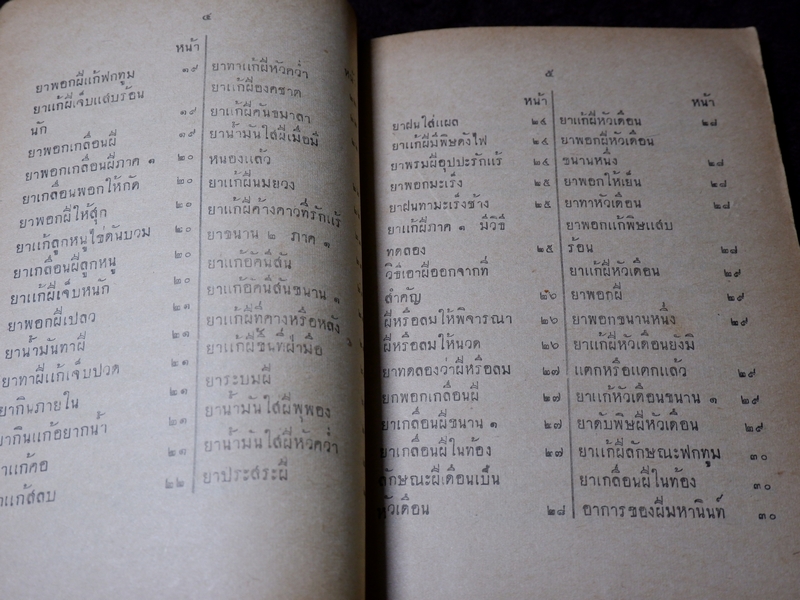 ๔
หน้า
ยาพอกฝีแก้ฟกทูม ๑๙
ยาแก้ฝีเจ็บแสบร้อน
นัก ๑๙
ยาพอกเกลื่อนฝี ๑๙
ยาพอกเกลื่อนฝีภาค ๑ ๒๐
ยาเกลื่อนพอกให้กัด ๒๐
ยาพอกฝีให้สุก ๒๐
ยาแก้ลูกหนูไข่ดันบวม ๒๐
ยาเกลื่อนฝีลูกหนู ๒๐
ยาแก้ฝีเจ็บหนัก ๒๐
ยาพอกฝีเปลว ๒๑
ยาน้ำมันทาฝี ๒๑
ยาทาฝีแก้เจ็บปวด ๒๑
ยากินภายใน ๒๑
ยากินแก้อยากน้ำ ๒๑
ยาแก้คอ ๒๑
ยาแก้สลบ ๒๒
ยาทาแก้ฝีหัวคว่ำ
ยาแก้ฝีองคชาต
ยาแก้ฝีคันชมาลา
ยาน้ำมันใส่ฝีเมื่อมี
หนองแล้ว
ยาแก้ฝีนมยวง
ยาแก้ฝีค้างคาวที่รักแร้
ยาขนาน ๒ ภาค ๑
ยาแก้อัคนีสัน
ยาแก้อัคนีสันขนาน ๑
ยาแก้ฝีที่คางหรือหลัง
ยาแก้ฝีขึ้นที่ฝ่ามือ
ยาระบมฝี
ยาน้ำมันใส่ฝีพุพอง
ยาน้ำมันใส่ฝีหัวคว่ำ
ยาประสระฝี
๕
หน้า
ยาฝนใส่แผล ๒๔
ยาแก้ฝีมีพิษดังไฟ ๒๔
ยาพรมฝีอุปปะรักแร้ ๒๔
ยาพอกมะเร็ง ๒๕
ยาฝนทามะเร็งช้าง ๒๕
ยาแก้ฝีภาค ๑ มีวิธี
ทดลอง ๒๕
วิธีเอาฝีออกจากที่
สำคัญ ๒๖
ฝีหรือลมให้พิจารณา ๒๖
ฝีหรือลมให้นวด ๒๖
ยาทดลองว่าฝีหรือลม ๒๗
ยกพอกเกลื่อนฝี ๒๗
ยาเกลื่อนฝีขนาน ๑ ๒๗
ยาเกลื่อนฝีในท้อง ๒๗
ลักษณะฝีเดือนเป็น
หัวเดือน ๒๘
หน้า
ยาแก้ฝีหัวเดือน ๒๘
ยาพอกฝีหัวเดือน
ขนานหนึ่ง ๒๘
ยาพอกให้เย็น ๒๘
ยาทาหัวเดือน ๒๘
ยาพอกแก้พิษแสบ
ร้อน ๒๘
ยาแก้ฝีหัวเดือน ๒๙
ยาพอกฝี ๒๙
ยาพอกขนานหนึ่ง ๒๙
ยาแก้ฝีหัวเดือนยังมิ
แตกหรือแตกแล้ว ๒๙
ยาแก้หัวเดือนขนาน ๑ ๒๙
ยาดับพิษฝีหัวเดือน ๒๙
ยาแก้ฝีลักษณะฟกทูม ๓๐
ยาเกลื่อนฝีในท้อง ๓๐
อาการของฝีมหานินท์ ๓๐